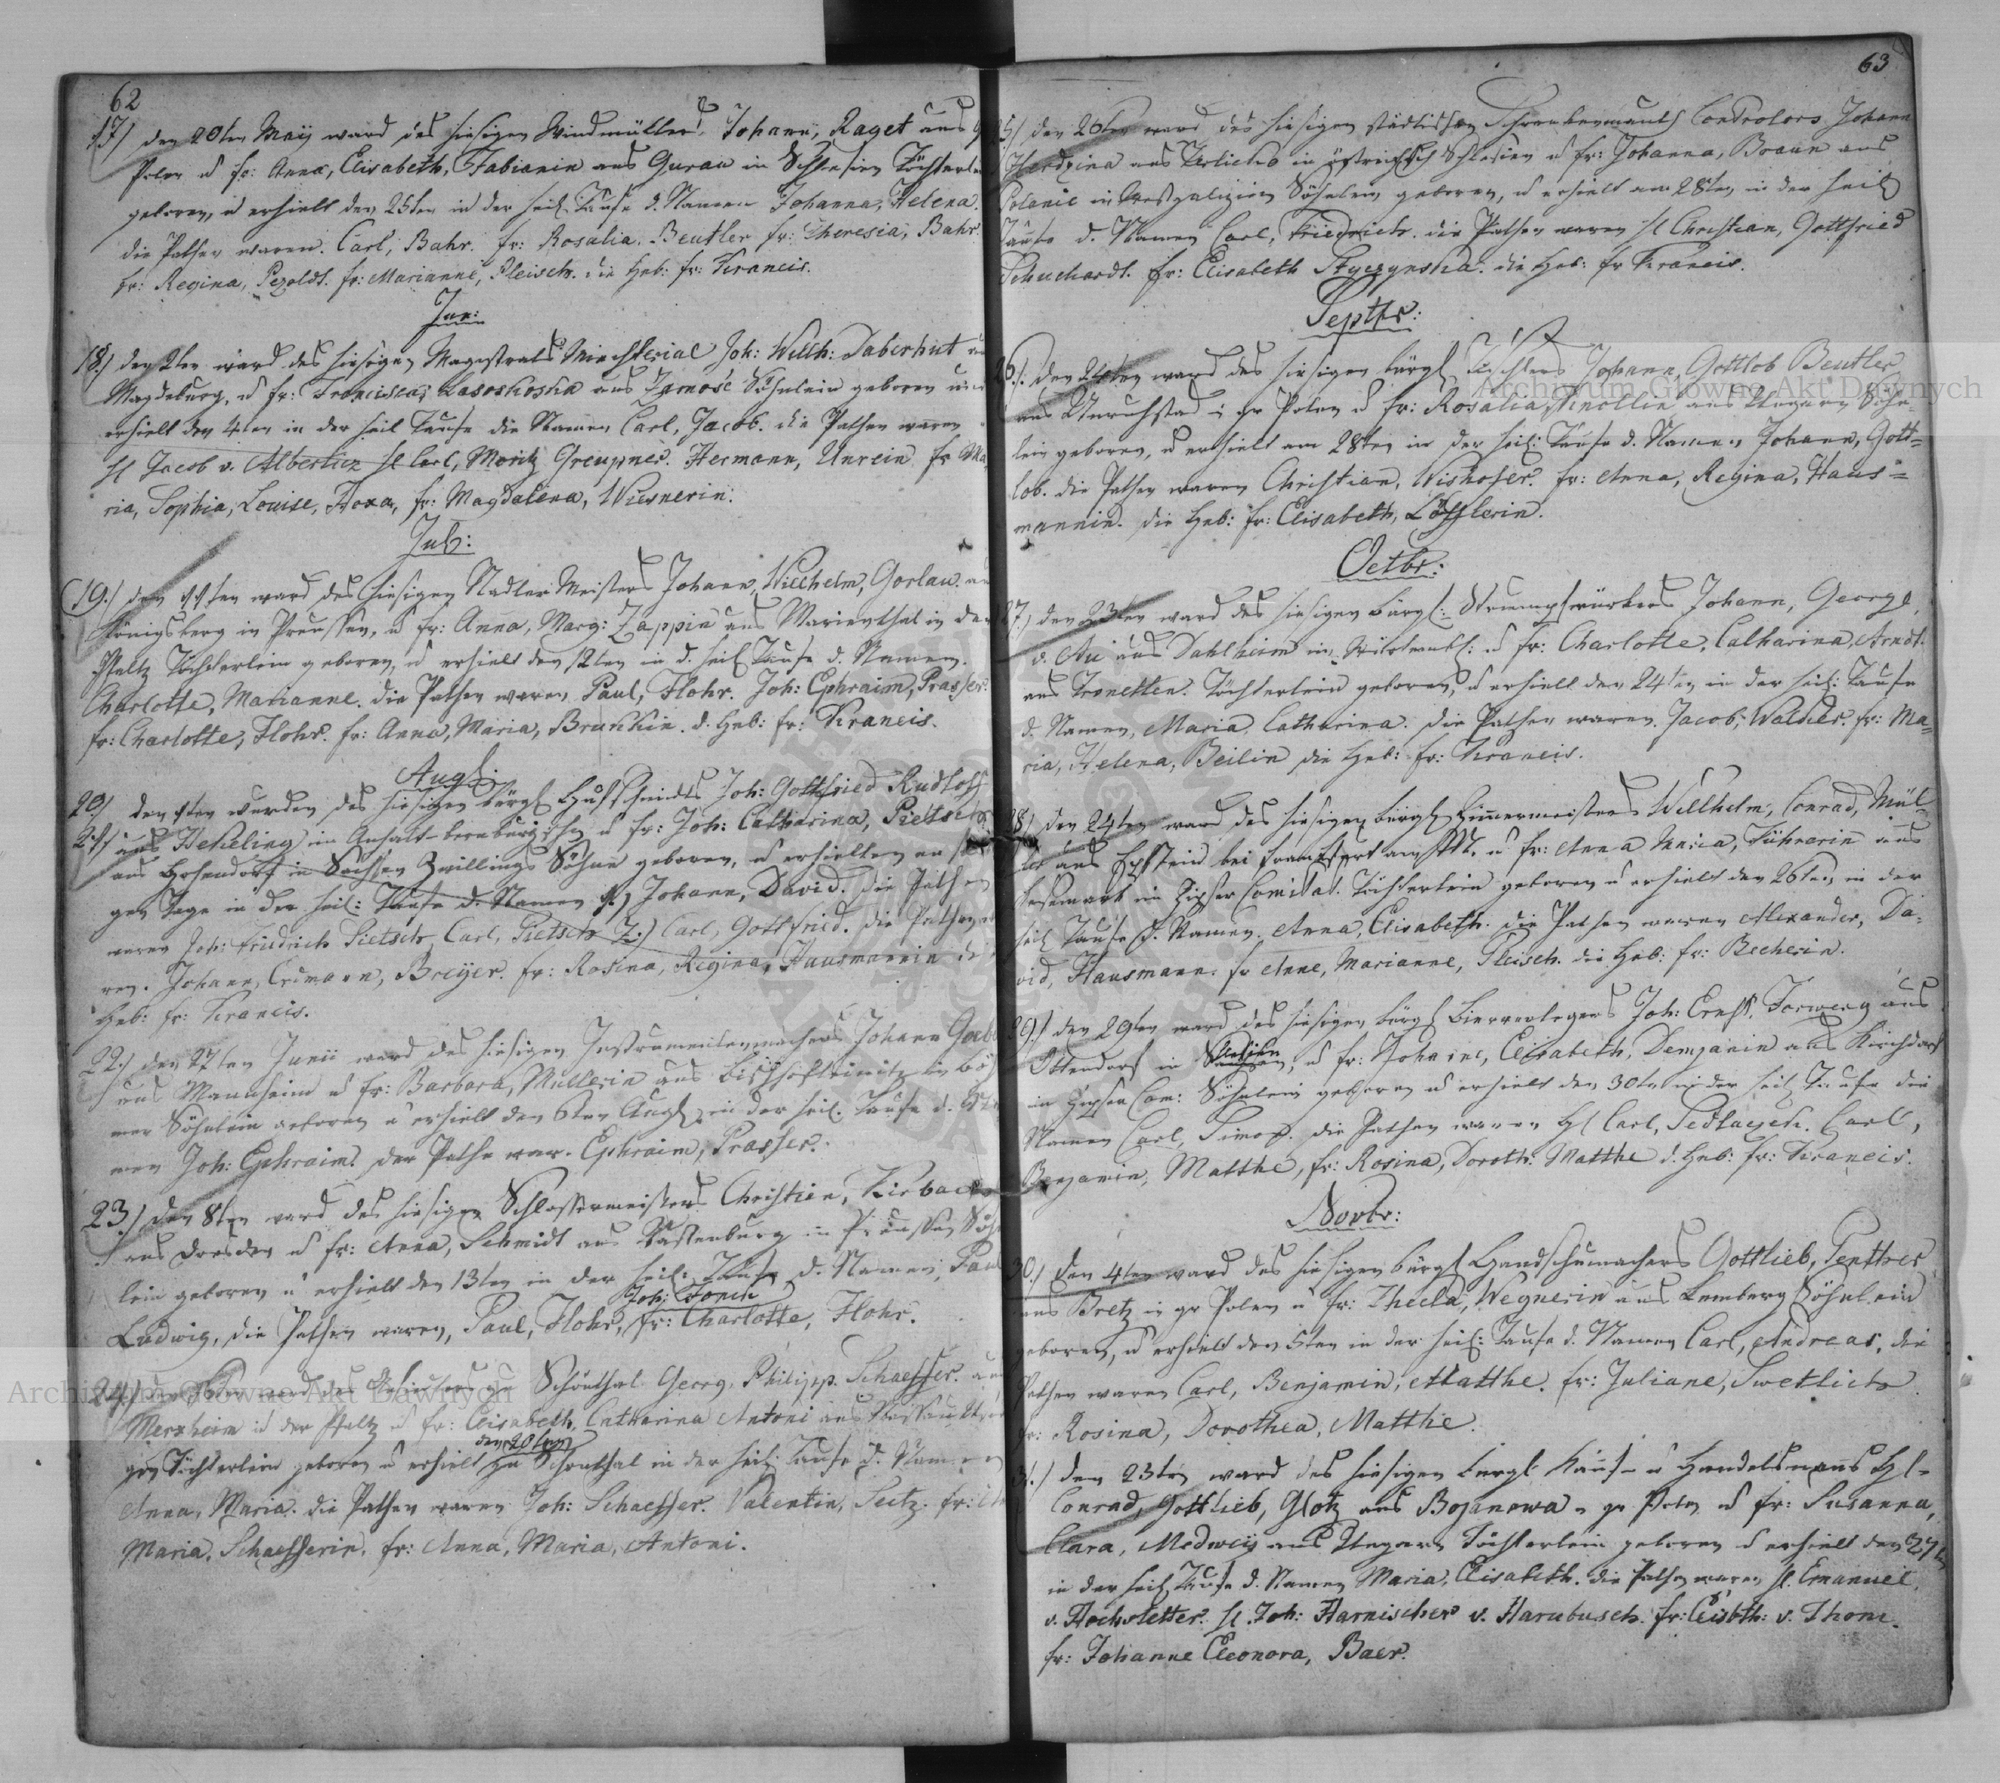 62
17) den 20ten Maÿ ward des hiesigen Windmüllers, Johann, Raget aus
Polen u fr: Anna, Elisabeth, Fabianin aus Gurau in Schlesien Töchterlein
geboren, u erhielt den 25ten in der heil: Taufe d. Namen Johanna, Helena.
die Pathen waren. Carl, Bahr. fr: Rosalia. Beutler fr: Theresia, Bahr
fr: Regina, Pezoldt. fr: Marianne, Pleisch. die Heb: fr: Francis.
Jun:
18.) den 2ten ward des hiesigen Magistrats Ministerial Joh: Willh: Daberhut
Magdeburg, u fr: Francisca, Lasoskoska aus Zamość Söhnlein geboren und
erhielt den 4ten in der heil Taufe die Namen Carl, Jacob. die Pathen waren
H Jacob v. Albertiez H Carl, Moritz Greupner. Hermann, Unrein fr Ma
ria, Sophia, Louise, Hoxa, fr: Magdalena, Wiesnerin.
Jul:
19.) den 11ten ward des hiesigen Nadler Meisters Johann, Willhelm, Gorlau.
Königsberg in Preussen, u fr: Anna, Marg: Zappin aus Marienthal in der
Pfaltz Töchterlein geboren, u erhielt den 12ten in d. heil Taufe d. Namen.
Charlotte, Marianne. die Pathen waren Paul, Flohr. Joh: Ephraim, Prasser.
fr: Charlotte, Flohr. fr: Anna, Maria, Brunkin. d. Heb: fr: Francis.
Augt.
20.) den 1ten wurden des hiesigen bürgl Hufschmidts Joh: Gottfried Rudloff
21.) aus Hekeling in Anhalt-bernburgischen u fr: Joh: Catharina, Pietsch
aus Hohendorf in Sachsen Zwillings Söhne geboren, u erhielten an
gen Tage in der heil: Taufe d. Namen Johann, David. die Pathen
waren Joh: Friedrich Pietsch, Carl, Pietsch 2.) Carl, Gottfried. die Pathen
ren. Johann, Ermann, Breÿer. fr: Rosina, Regina, Hausmannin die
Heb: fr: Francis.
22.) den 27ten Junii ward des hiesigen Instrumentenmachers Johann
aus Mannheim u fr: Barbara, Mullerin aus Bischofteinitz in Böh
men Söhnlein geboren u erhielt den 6ten Augt in der heil. Taufe d. Na
men Joh: Ephraim. der Pathe war. Ephraim, Prasser.
23.) den 8ten ward des hiesigen Schlossermeisters Christian, Kirbach
aus Dresden u fr: Anna, Schmidt aus Rastenburg in Preussen Söhn
lein geboren u erhielt den 13ten in der heil: Taufe d. Namen, Paul
Joh:
Ludwig, die Pathen waren, Paul, Flohr, fr: Charlotte, Flohr.
24.) den ward des Schönthal Georg, Philipp. Schaeffer. aus
Merxheim in der Pfaltz u fr: Elisabeth, Catharina Antoni aus
den 20ten
gen Töchterlein geboren u erhielt zu Schönthal in der heil: Taufe d. Namen
Anna, Maria. die Pathen waren Joh: Schaeffer. Valentin, Seitz. fr:
Maria, Schaefferin. fr: Anna, Maria, Antoni.
63
25) den 26ten ward des hiesigen städtischen Schrankenmauth Controlors Johann
aus in östreichisch Schlesien u fr: Johanna, Braun aus
in Westgalizien Söhnlein geboren, u erhielt am 28ten in der heil
Taufe d. Namen Carl, Friedrich. die Pathen waren H Christian, Gottfried
Schuchardt. fr: Elisabeth Styczynska. die Heb: fr Francis.
Septbr:
26.) den 24ten ward des hiesigen bürgl Tischlers Johann, Gottlob Beutler
aus Unruhstad in gr Polen u fr: Rosalia, Knollin aus Ungarn Söhn-
lein geboren, u erhielt am 28ten in der heil: Taufe d. Namen Johann, Gott=
lob. die Pathen waren Christian, Wishofer. fr: Anna, Regina, Haus=
mannin. die Heb: fr: Elisabeth, Löfflerin.
Octbr:
27.) den 23ten ward des hiesigen bürgl: Strumpfwürkers Johann, George
v. Au aus Dahlheim in u fr: Charlotte, Catharina, Arndt.
aus Töchterlein geboren, u erhielt den 24ten in der heil: Taufe
d. Namen, Maria, Catharina. die Pathen waren. Jacob, Walder. fr: Ma=
ria, Helena, Beilin die Heb: fr: Francis.
28.) den 24ten ward des hiesigen bürgl Zimmermeisters Willhelm, Conrad, Mül-
ler aus Epstein bei Franckfurt am M. u fr: Anna Maria, Führerin aus
Kesemark im Zipser Comitat. Töchterlein geboren u erhielt den 26ten in der
heil Taufe d. Namen. Anna, Elisabeth. die Pathen waren Alexander, Da-
vid, Hausmann. fr Anne, Marianne, Pleisch. die Heb: fr: Becherin.
29.) den 29ten ward des hiesigen bürgl Bierverlegers Joh: Ernst, Forwerg aus
Ottendorf in Sachsen, u fr: Johanne, Elisabeth, Demjanin aus Kirchdorf
in Zipser Com: Söhnlein geboren u erhielt den 30ten in der heil Taufe die
Namen Carl, Simon. die Pathen waren H Carl, Sedlaczek. Carl,
Benjamin, Matthe, fr: Rosina, Doroth: Matthe d. Heb: fr: Francis.
Novbr:
30.) den 4ten ward des hiesigen bürgl Handschumachers Gottlieb, Penttner
aus Bretz in gr Polen u fr: Thecla, Wegnerin aus Lemberg Söhnlein
geboren, u erhielt den 5ten in der heil: Taufe d. Namen Carl, Andreas. die
Pathen waren Carl, Benjamin, Matthe. fr: Juliane, Swetlich
fr: Rosina, Dorothea, Matthe.
31.) den 23ten ward des hiesigen bürgl Kauf- u Handelsmanns H-
Conrad, Gottlieb, Glotz aus Bojanowa in gr Polen u fr: Susanna,
Clara, Medweij aus Ungarn Töchterlein geboren u erhielt den 27ten
in der heil Taufe d. Namen Maria, Elisabeth. die Pathen waren H. Emanuel.
v. Hochstetter. H. Joh: Harnischer v. Harubusch. fr: Elisbth: v. Thom.
fr: Johanne Eleonora, Baer.
Archiwum Główne Akt Dawnych
Archiwum Główne Akt Dawnych